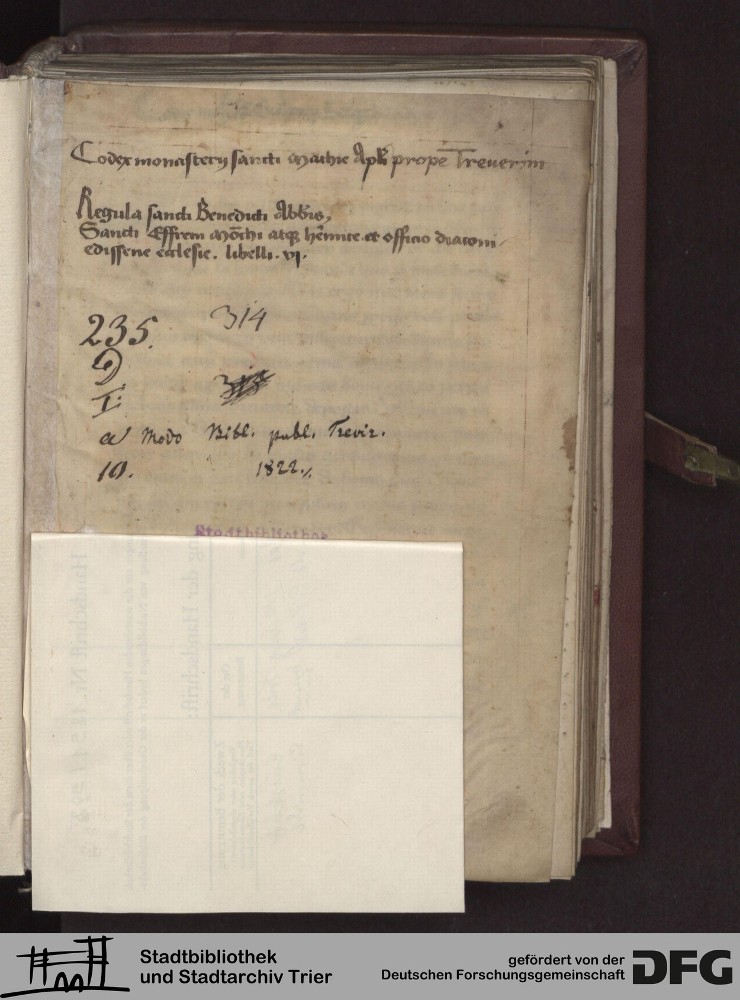 Codex monasterij sancti Mathie Apli prope Treuerim
Regula sancti Benedicti Abbis,
Sancti Effrem mochi atq heremite et officio diaconi
edissene ecclesie. libelli. vj.
235. 314
D
I:
a Modo Bibl. publ. Trevir.
10. 1822.
Stadtbibliothek
Stadtbibliothek
und Stadtarchiv Trier
gefördert von der
Deutschen Forschungsgemeinschaft
DFG